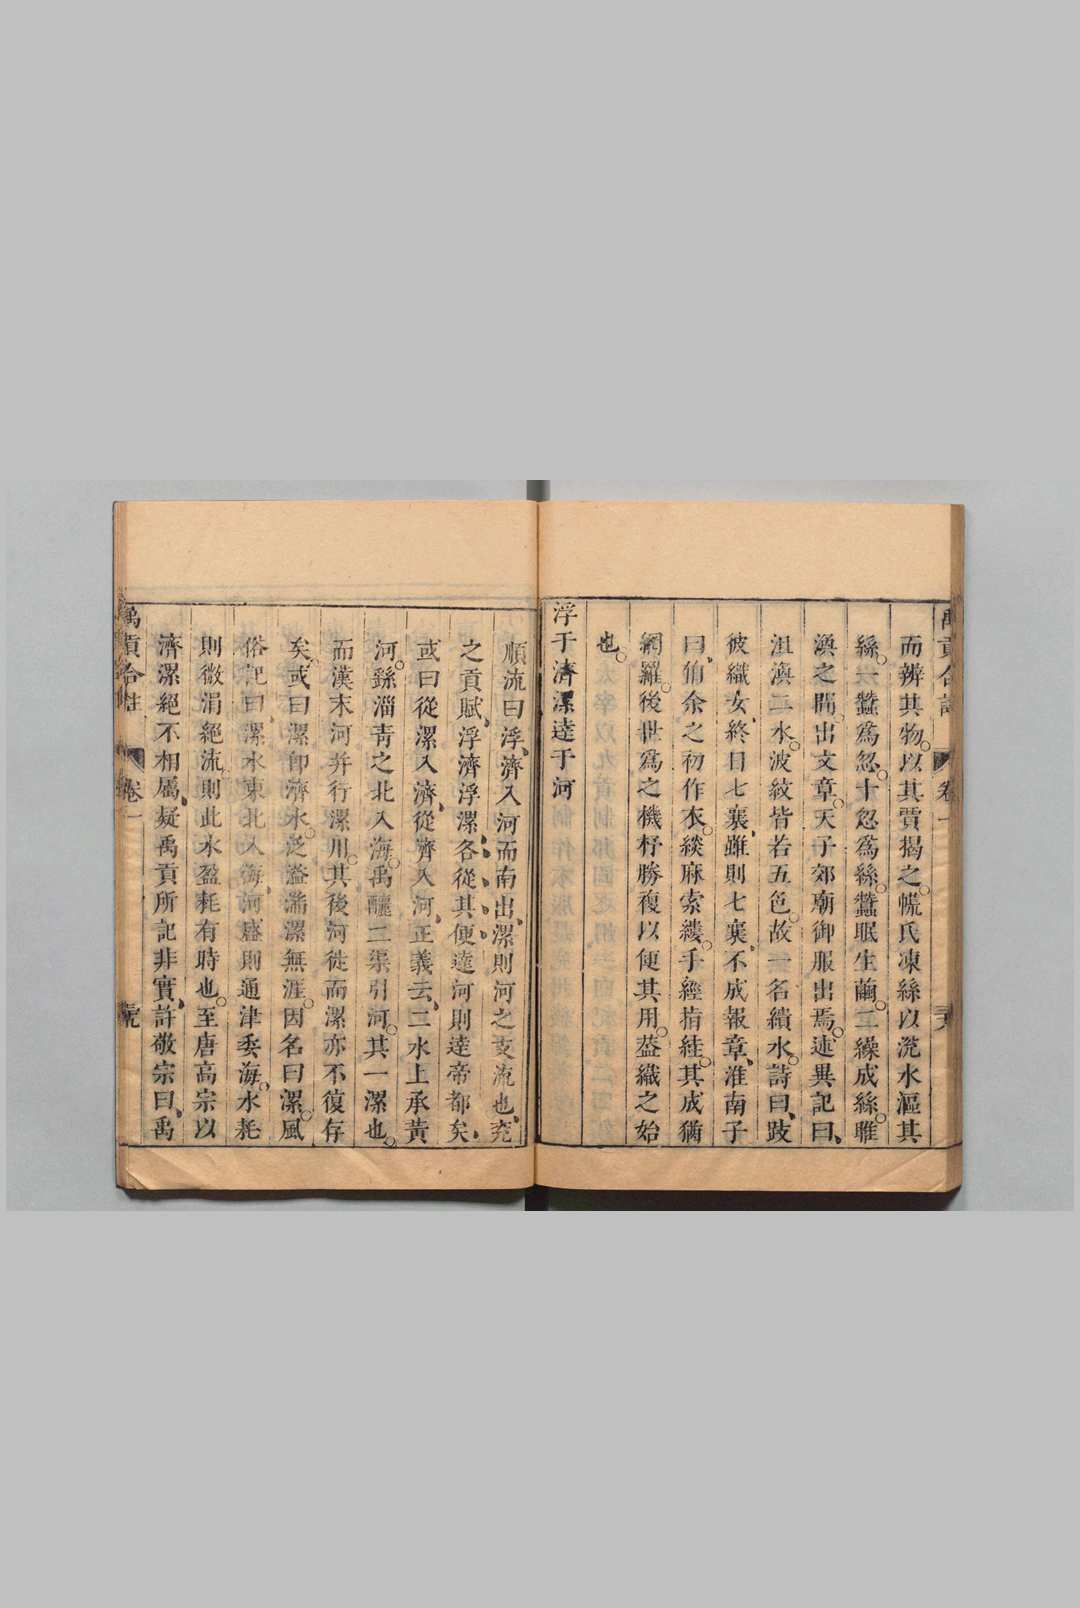 而辨其物以其賈揭之㡃氏凍絲以涗水漚其
絲一蠶爲忽十忽爲絲蠶眠生繭工繰成絲睢
渙之間出文章天子郊廟御服出焉述異記曰
沮渙二水波紋皆若五色故一名繢水詩曰跂
彼織女終日七襄雖則七襄不成報章淮南子
曰伯余之初作衣緂麻索縷手經指絓其成猶
網羅後世爲之機杼勝複以便其用葢織之始
也
浮于濟漯達于河
順流曰浮濟入河而南出漯則河之支流也兖
之貢賦浮濟浮漯各從其便達河則達帝都矣
或曰從漯入濟從濟入河正義云二水上承黃
河繇淄青之北入海禹釃二渠引河其一漯也
而漢末河并行漯川其後河徙而漯亦不復存
矣或曰漯卽濟水泛溢瀰漯無涯因名曰漯風
俗記曰漯水東北入海河盛則通津委海水耗
則微涓絕流則此水盈耗有時也至唐高宗以
濟漯絕不相屬疑禹貢所記非實許敬宗曰禹
禹貢合註 卷一